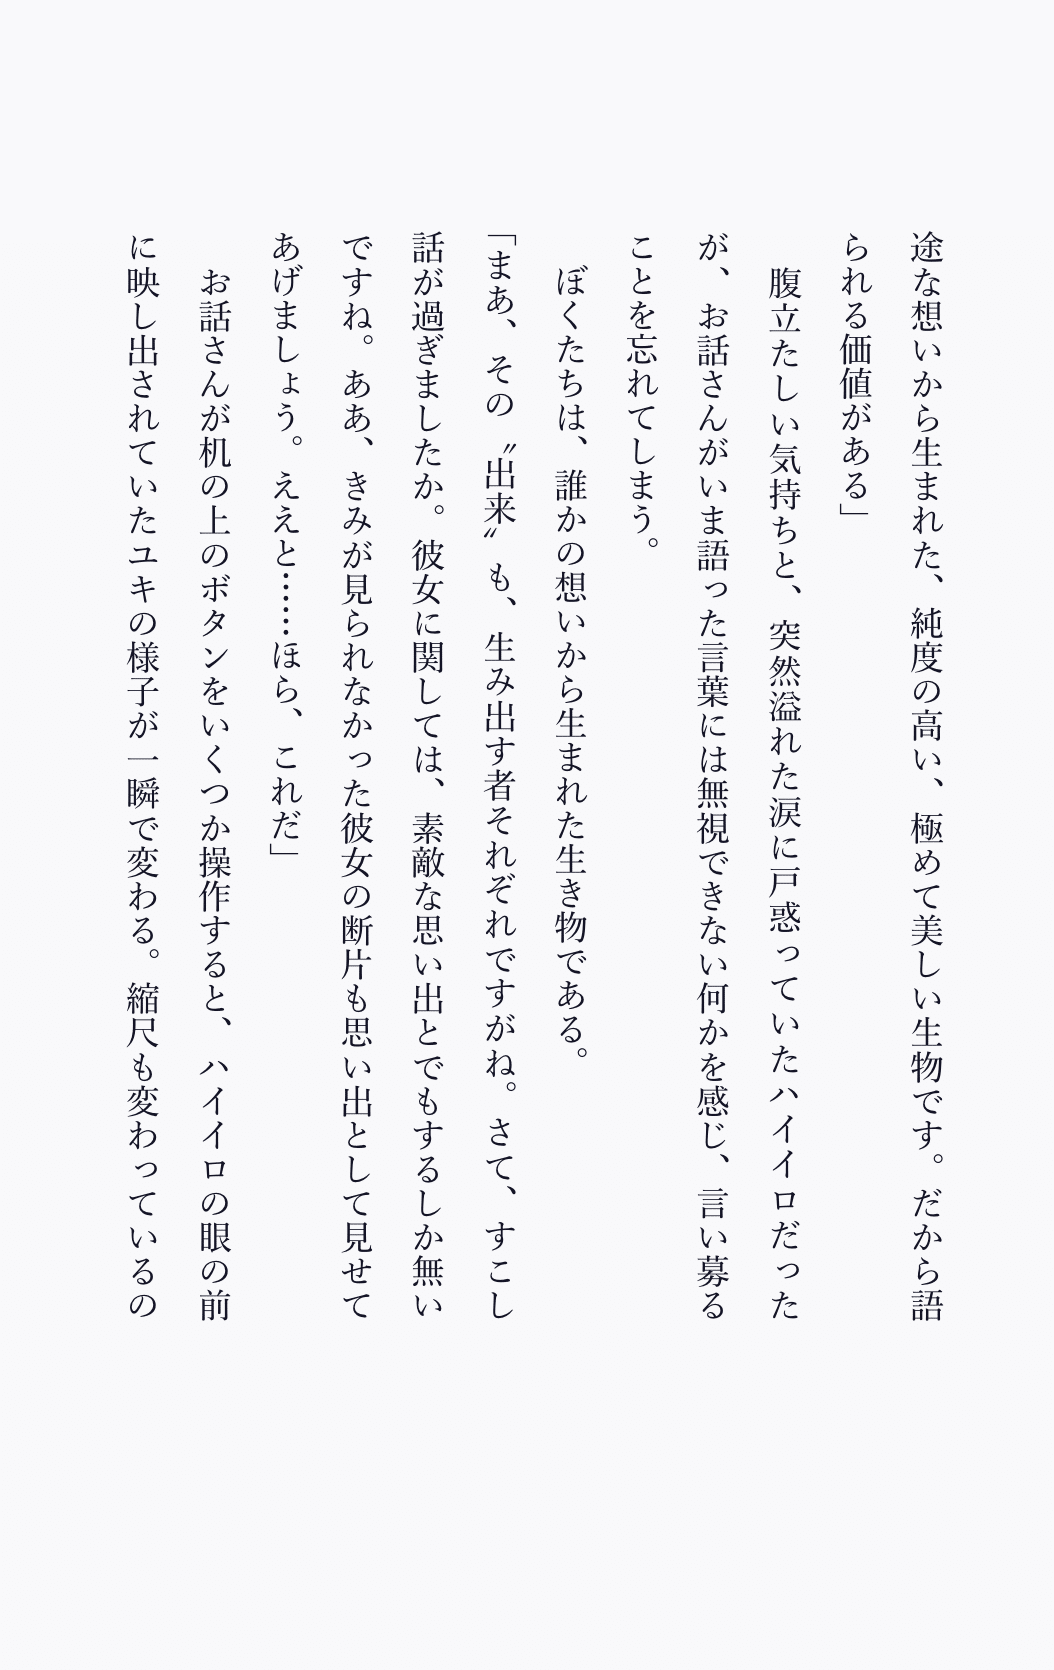 途な想いから生まれた、純度の高い、極めて美しい生物です。だから語
られる価値がある」
　腹立たしい気持ちと、突然溢れた涙に戸惑っていたハイイロだった
が、お話さんがいま語った言葉には無視できない何かを感じ、言い募る
ことを忘れてしまう。
　ぼくたちは、誰かの想いから生まれた生き物である。
「まあ、その〝出来〟も、生み出す者それぞれですがね。さて、すこし
話が過ぎましたか。彼女に関しては、素敵な思い出とでもするしか無い
ですね。ああ、きみが見られなかった彼女の断片も思い出として見せて
あげましょう。ええと……ほら、これだ」
　お話さんが机の上のボタンをいくつか操作すると、ハイイロの眼の前
に映し出されていたユキの様子が一瞬で変わる。縮尺も変わっているの